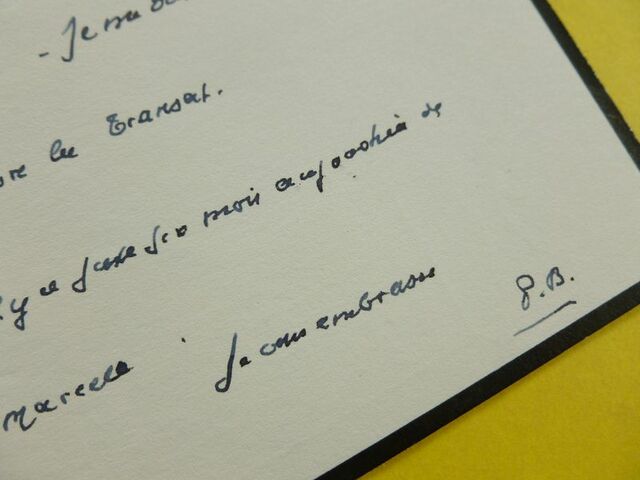 - Je
lu Transat.
y a juste six mois aujourd'hui de
Marcelle . Je vous embrasse
P.B.